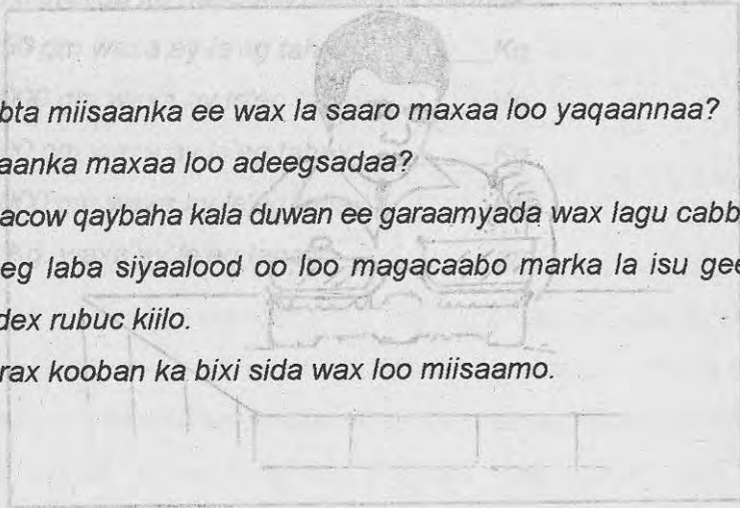 bta miisaanka ee wax la saaro maxaa loo yaqaannaa?
aanka maxaa loo adeegsadaa?
acow qaybaha kala duwan ee garaamyada wax lagu cabb
eg laba siyaalood oo loo magacaabo marka la isu gee
dex rubuc kiilo.
rax kooban ka bixi sida wax loo miisaamo.